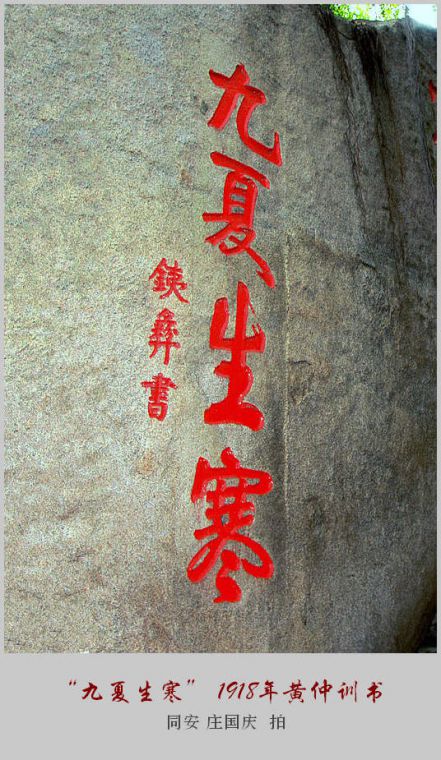 九夏生寒
銕彝書
“九夏生寒” 1918年黄仲训书
同安 庄国庆 拍